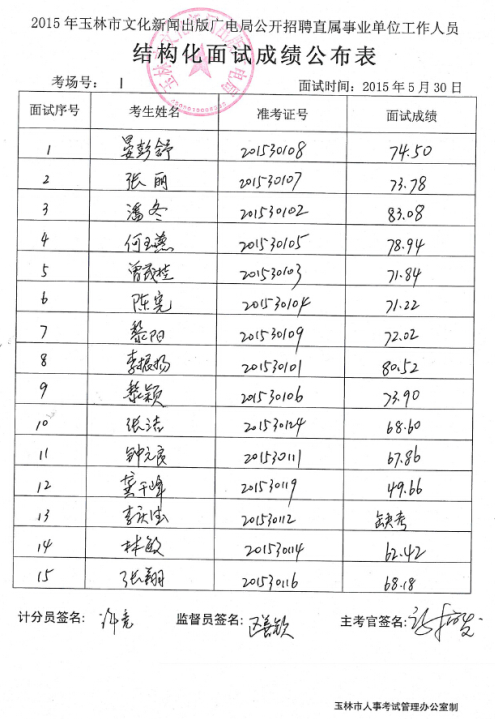 2015年玉林市文化新闻出版广电局公开招聘直属事业单位工作人员
结构化面试成绩公布表
考场号: 1 面试时间: 2015年5月30日
面试序号 考生姓名 准考证号 面试成绩
1 晏彭舒 201530108 74.50
2 张丽 201530107 73.78
3 潘冬 201530102 83.08
4 何玉燕 201530105 78.94
5 曾茂桂 201530103 71.84
6 陈宪 201530104 71.22
7 黎阳 201530109 72.02
8 李振扬 201530101 80.52
9 黎颖 201530106 73.90
10 张洁 201530124 68.60
11 钟元良 201530111 67.86
12 莫千峰 201530119 49.66
13 李庆 201530112 缺考
14 林敏 201530114 62.42
15 张翔 201530116 68.18
计分员签名: 监督员签名: 主考官签名:
玉林市人事考试管理办公室制